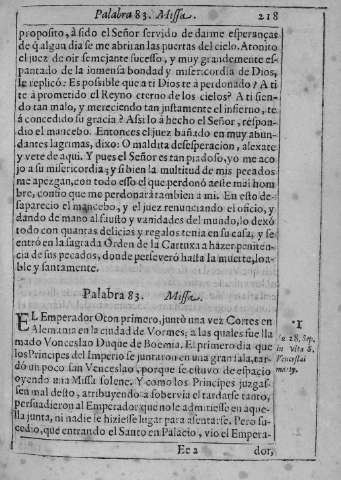 Palabra 83. Missa. 218
proposito, à sido el Señor servido de darme esperanças
de q̃ algun dia se me abriran las puertas del cielo. Atonito
el juez de oir semejante sucesso, y muy grandemente es-
pantado de la inmensa bondad y misericordia de Dios,
le replicò: Es possible que a ti Dios te à perdonado? A ti
te à prometido el Reyno eterno de los cielos? A ti sien-
do tan malo, y mereciendo tan justamente el infierno, te
à concedido su gracia? Assi lo à hecho el Señor, respon-
dio el mancebo. Entonces el juez bañado en muy abun-
dantes lagrimas, dixo: O maldita desesperacion, alexate
y vete de aqui. Y pues el Señor es tan piadoso, yo me aco-
jo a su misericordia; y si bien la multitud de mis pecados
me apezgan, con todo esso el que perdonò a este mal hom
bre, confio que me perdonarà tambien a mi. En esto de-
saparecio el mancebo, y el juez renunciando el oficio, y
dando de mano al fausto y vanidades del mundo, lo dexò
todo con quantas delicias y regalos tenia en su casa, y se
entrò en la sagrada Orden de la Cartuxa a hazer peniten-
cia de sus pecados, donde perseverò hasta la muerte, loa-
ble y santamente.
Palabra 83. Missa.
EL Emperador Oton primero, juntò una vez Cortes en
Alemania en la ciudad de Vormes; a las quales fue lla
mado Vonceslao Duque de Boemia. El primero dia que
los Principes del Imperio se juntaron en una gran sala, tar-
dò un poco san Venceslao, porque se estuvo de espacio
oyendo una Missa solene. Y como los Principes juzgas-
sen mal desto, atribuyendo a sobervia el tardarse tanto,
persuadieron al Emperador que no le admitiesse en aque-
lla junta, ni nadie le hiziesse lugar para assentarse. Pero su-
cedio, que entrando el Santo en Palacio, vio el Empera-
Ee 2 dor,
1
28. Sep.
in vita S.
Venceslai
marty.